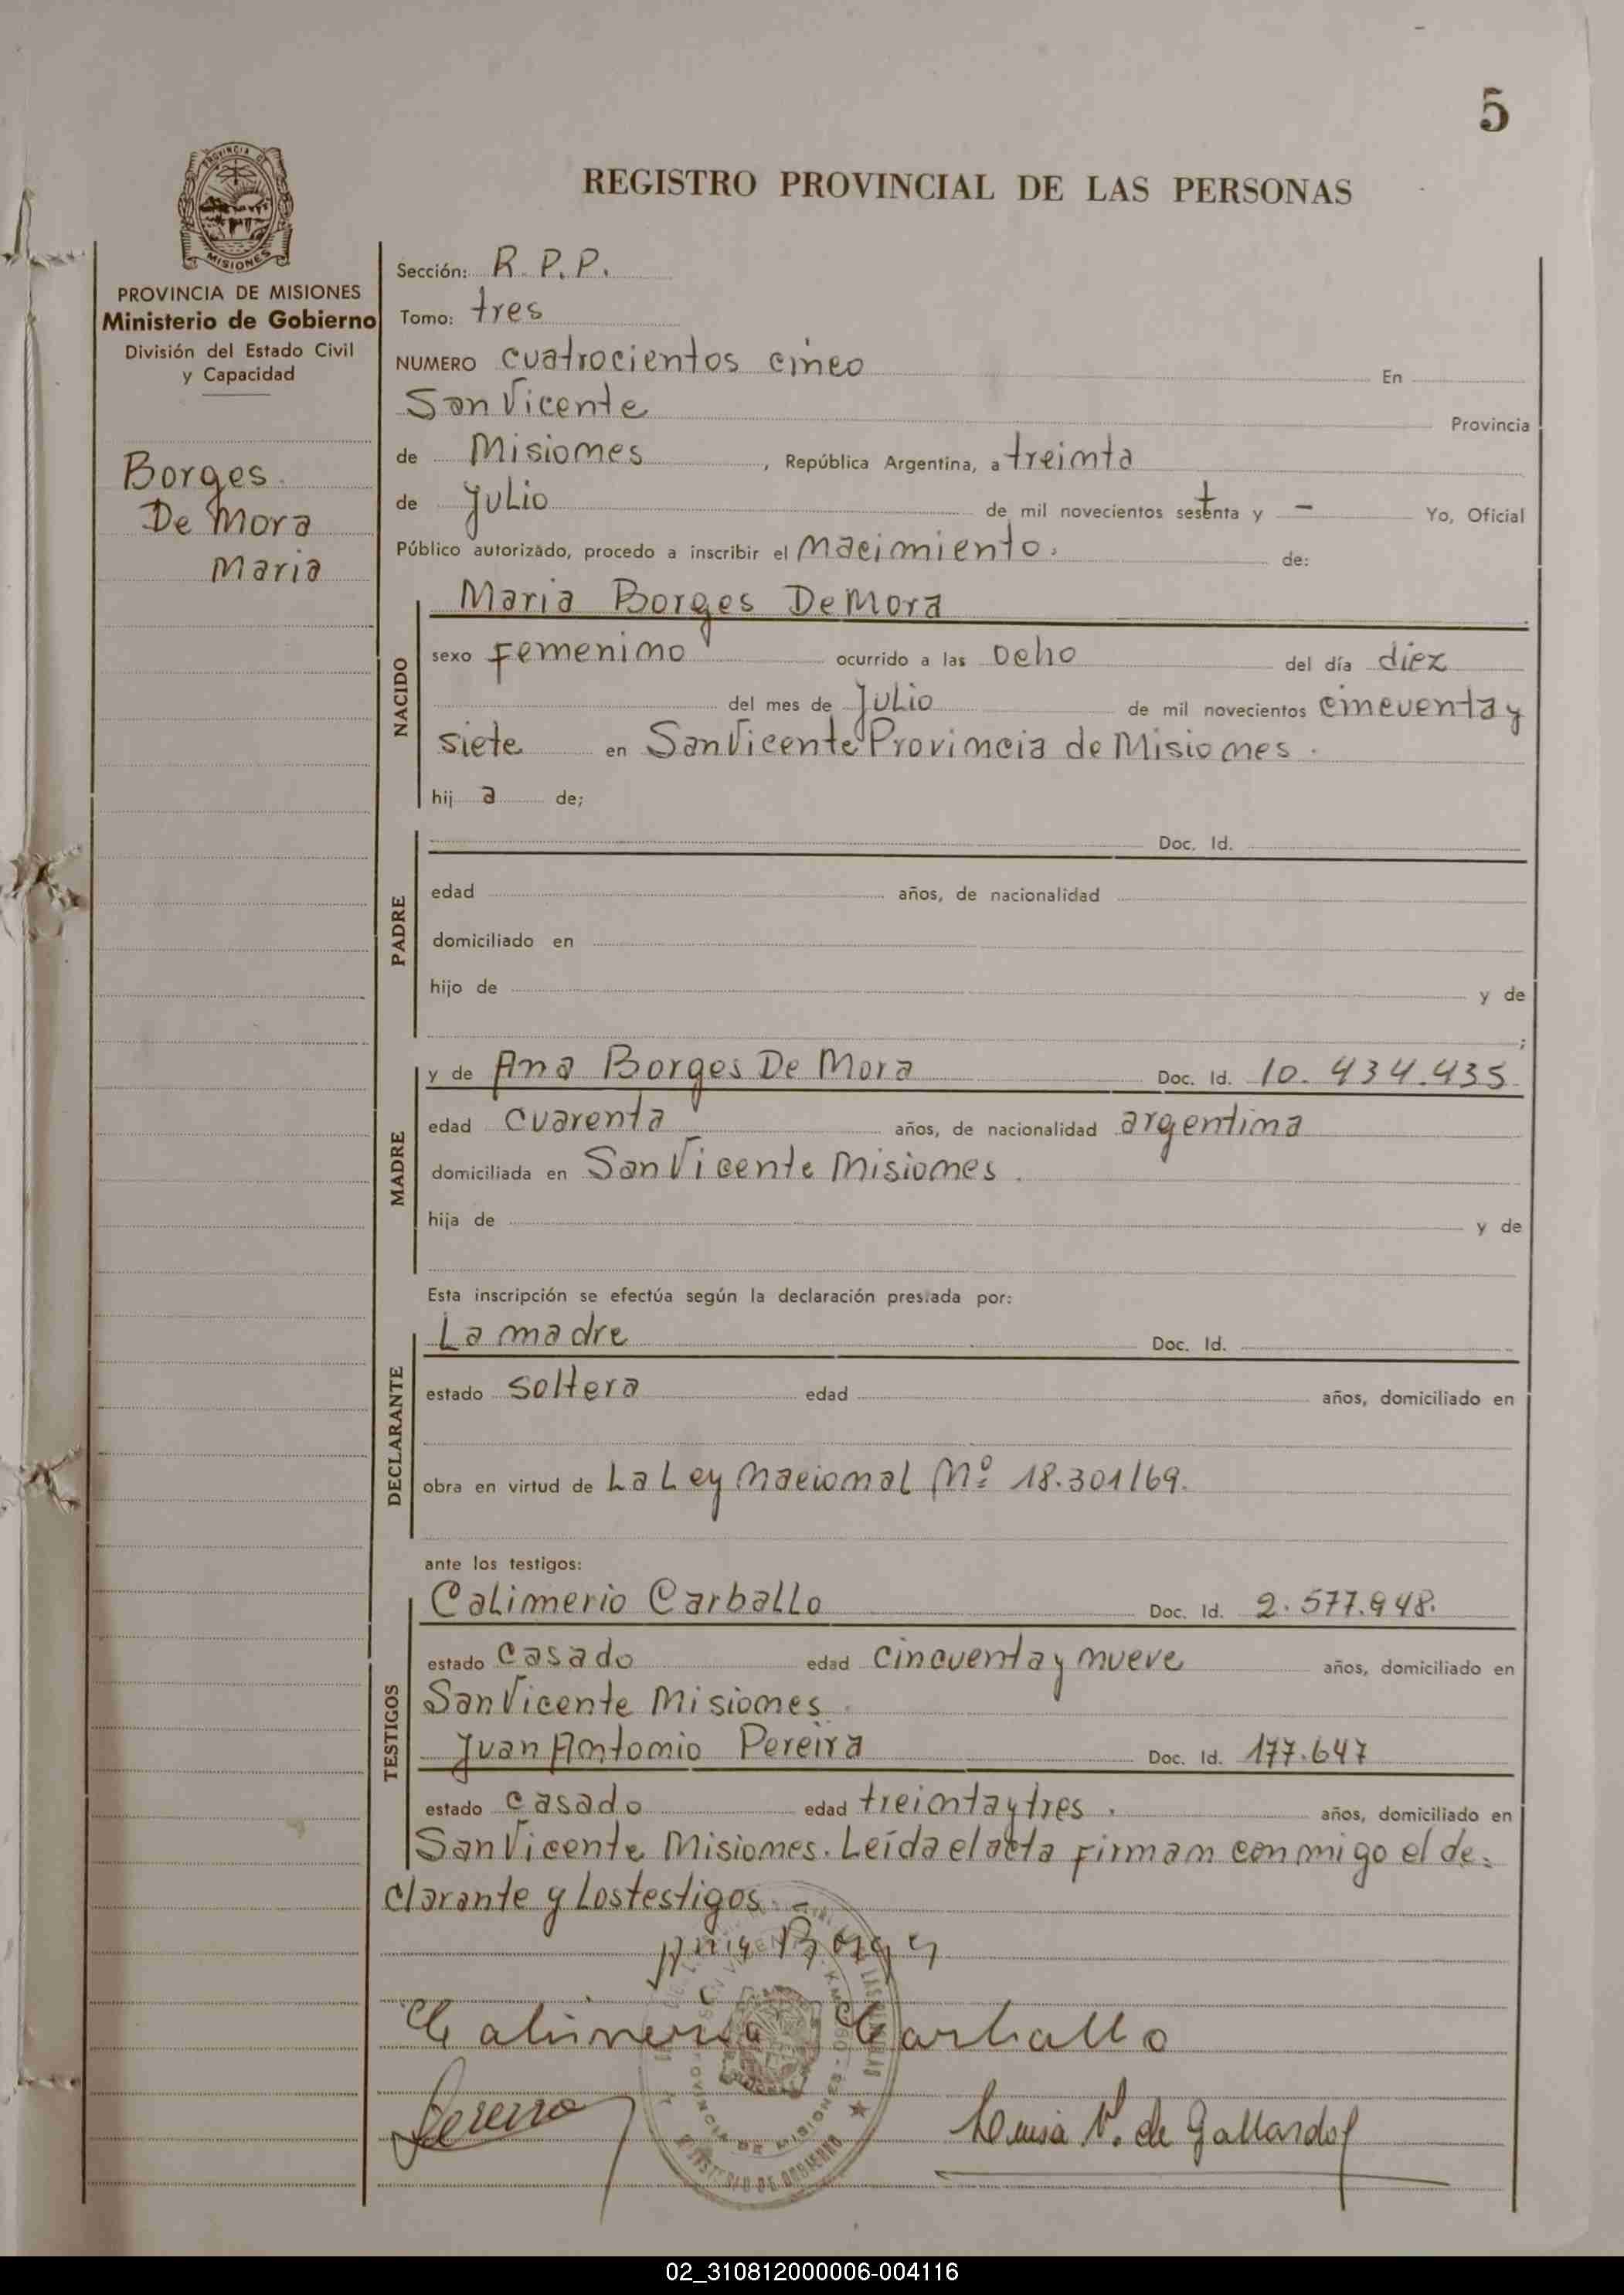 5
REGISTRO PROVINCIAL DE LAS PERSONAS
PROVINCIA DE
MISIONES
PROVINCIA DE MISIONES
Ministerio de Gobierno
División del Estado Civil
y Capacidad
Borges
De Mora
Maria
Sección: R. P. P.
Tomo: tres
NUMERO cuatrocientos cinco En
San Vicente Provincia
de Misiones, República Argentina, a treinta
de Julio de mil novecientos setenta y - Yo, Oficial
Público autorizado, procedo a inscribir el nacimiento. de:
NACIDO
Maria Borges De Mora
sexo Femenino ocurrido a las ocho del día diez
del mes de Julio de mil novecientos cincuenta y
siete en San Vicente Provincia de Misiones.
hij a de;
PADRE
Doc. Id.
edad años, de nacionalidad
domiciliado en
hijo de y de
;
MADRE
y de Ana Borges De Mora Doc. Id. 10.434.435
edad cuarenta años, de nacionalidad argentina
domiciliada en San Vicente Misiones.
hija de y de
Esta inscripción se efectúa según la declaración prestada por:
DECLARANTE
La madre Doc. Id.
estado soltera edad años, domiciliado en
obra en virtud de La Ley Nacional Nº 18.301/69.
ante los testigos:
TESTIGOS
Calimerio Carballo Doc. Id. 2.577.948.
estado casado edad cincuenta y nueve años, domiciliado en
San Vicente Misiones.
Juan Antonio Pereira Doc. Id. 177.647
estado casado edad treinta y tres. años, domiciliado en
San Vicente Misiones. Leída el acta firman conmigo el de-
clarante y los testigos. -
Ana Borges
Calimerio Carballo
Luisa V. de Gallardo
PROVINCIA DE MISIONES
MINISTERIO DE GOBIERNO
02_310812000006-004116